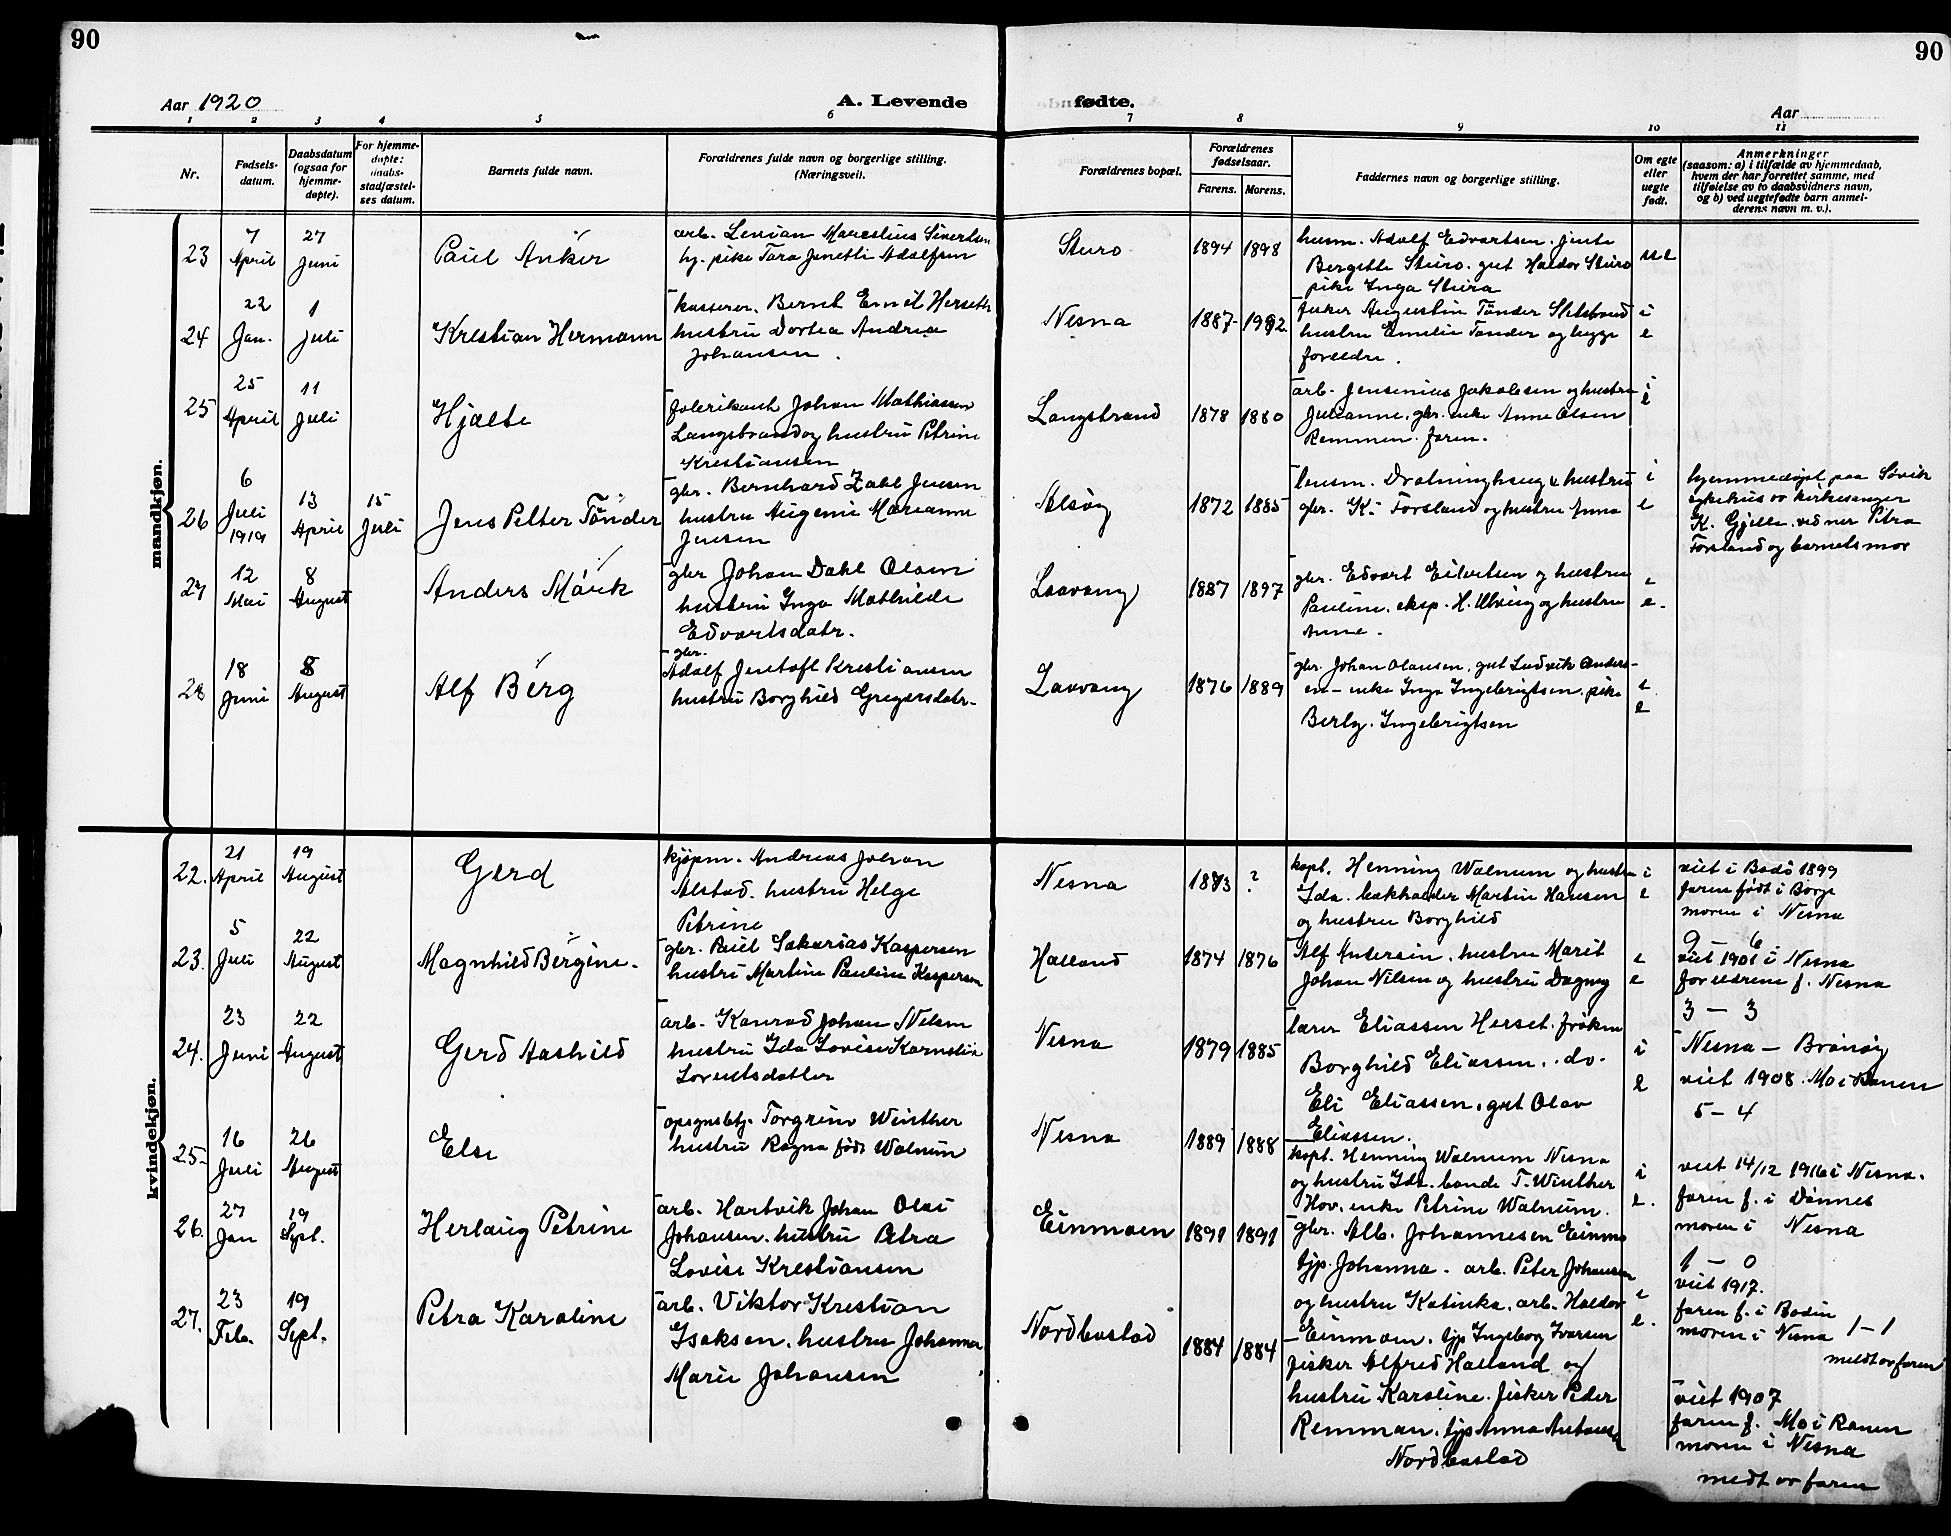 90
90
Aar 1920
A. Levende fødte.
Aar
1 2 3 4 5 6 7 8 9 10 11
Nr.
Fødsels-
datum.
Daabsdatum
(ogsaa for
hjemme-
døpte).
For hjemme-
døpte:
daabs-
stadfæstel-
ses datum.
Barnets fulde navn.
Forældrenes fulde navn og borgerlige stilling.
(Næringsvei).
Forældrenes bopæl.
Forældrenes
fødselsaar.
Farens. Morens.
Faddernes navn og borgerlige stilling.
Om egte
eller
uegte
født.
Anmerkninger
(saasom: a) i tilfælde av hjemmedaab,
hvem der har forrettet samme, med
tilføielse av to daabsvidners navn,
og b) ved uegtefødte barn anmel-
derens navn m. v.).
mandkjøn.
23
7
April
27
Juni
Paul Anker
arb. Marcelius Sivertsen
pike Tara Adolfsen
Sturo
1894 1898
husm. Adolf Edvartsen. jente
Bergitte Sturo. gut Haldor Sturo
pike Inga Sturo
ue
24
22
Jan.
1
Juli
Krestian Hermann
kasserer. Bernt Emil Herseth
hustru Dortea Andrea
Johansen.
Nesna
1887
fisker Augustin Tønder
hustru Emelie Tønder og begge
foreldre.
e
25
25
April
11
Juli
Hjalte
fabrikant Johan Mathiassen
Langstrand og hustru Petrine
Kristiansen
Langstrand
1878 1880
arb. Jensenius Jakobsen og hustru
Julianne. gbr. enke Anne Olsen
Remmen. faren.
26
6
Juli
1919
13
April
15
Juli
Jens Petter Tønder
gbr. Bernhard Zahl Jensen
hustru Augenie Marianne
Jensen
Alsøy
1872 1885
lensm. Drotninghaug & hustru
gbr. K. Forsland og hustru Anna
i
e
hjemmedøpt paa Søvik
sykehus av kirkesanger
K. Gjelle. vidner Petra
Forsland og barnets mor
27
12
Mai
8
August
Anders
gbr Johan Dahl Olsen
hustru Inga Mathilde
Edvartsdatr.
Laavong
1887 1897
gbr. Edvart og hustru
Pauline. eksp. H. Ulving og hustru
Anne.
e.
28
18
Juni
8
August
Alf Berg
gbr.
Adolf Jentoft Krestiansen
hustru Borghild Gregersdatr.
Laavong
1876 1889
gbr. Johan Olausen, gut Ludvik Anders-
en - enke Inga Ingebrigtsen. pike
Berly. Ingebrigtsen
e
kvindekjøn.
22.
21
April
19
August
Gerd
kjøpm. Andreas Johan
Alstad. hustru Helge
Petrine
Nesna
1873 ?
kapt. Henning Walnum og hustru
Ida. bokholder Martin Hansen
og hustru Borghild
i
e
viet i Bodø 1899
faren født i Borge
moren i Nesna
9 - 6
23.
5
Juli
22
August
Magnhild Bergine.
gbr. Paul Sakarias Kaspersen
hustru Martine Pauline Kaspersen
Halland
1874 1876
Alf Andersen. hustru Marit
Johan Nilsen og hustru Dagny
e
viet 1901 i Nesna
foreldrene f. Nesna
3 - 3
24.
23
Juni
22
August
Gerd Aashild
arb. Konrad Johan Nelsen
hustru Ida Lovise
Lorentsdatter
Nesna
1879 1885
lærer Eliassen Herset. frøken
Borghild Eliassen. do.
Eli Eliassen. gut Olav
Eliassen.
i
e
Nesna - Brønøy
viet 1908. Mo i Ranen
5 - 4
25
16
Juli
26
August
Else
opsynsbetj. Torgrim Winther
hustru Ragna født Walnum
Nesna
1889 1888
kapt. Henning Walnum Nesna
og hustru Ida. bonde T. Winther
Hov. enke Petrine Walnum.
i
e.
viet 14/12 1916 i Nesna.
faren f. i Dønnes
moren i Nesna
1 - 0
26.
27
Jan
19
Sept.
Herlaug Petrine
arb. Hartvik Johan Olai
Johansen. hustru Petra
Lovise Krestiansen
Einmoen
1891 1891
gbr. Alb. Johannesen Einmo
tjp. Johanna. arb. Peter Johansen
og hustru Katinka. arb. Haldor
Einmoen. tjp Ingeborg Ivarsen
e.
viet 1917.
faren f. i Bodin
moren i Nesna 1-1
meldt av faren
27.
23
Feb.
19
Sept.
Petra Karoline
arb. Viktor Krestian
Isaksen. hustru Johanna
Marie Johansen
Nordbostad
1884 1884
fisker Alfred Halland og
hustru Karoline. fisker Peder
Remman. tjp Anna
Nordbostad
viet 1907
faren f. Mo i Ranen
moren i Nesna
meldt av faren